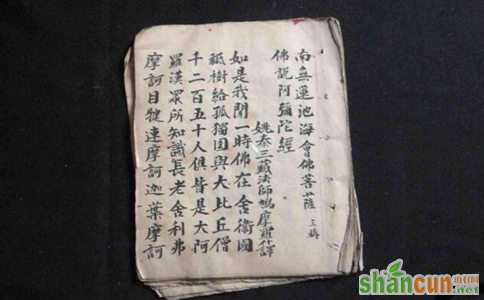 南無蓮池海會佛菩薩 三稱
佛說阿彌陀經
姚秦三藏法師鳩摩羅什譯
如是我聞一時佛在舍衛國
祇樹給孤獨園與大比丘僧
千二百五十人俱皆是大阿
羅漢眾所知識長老舍利弗
摩訶目犍連摩訶迦葉摩訶
shancun
.net